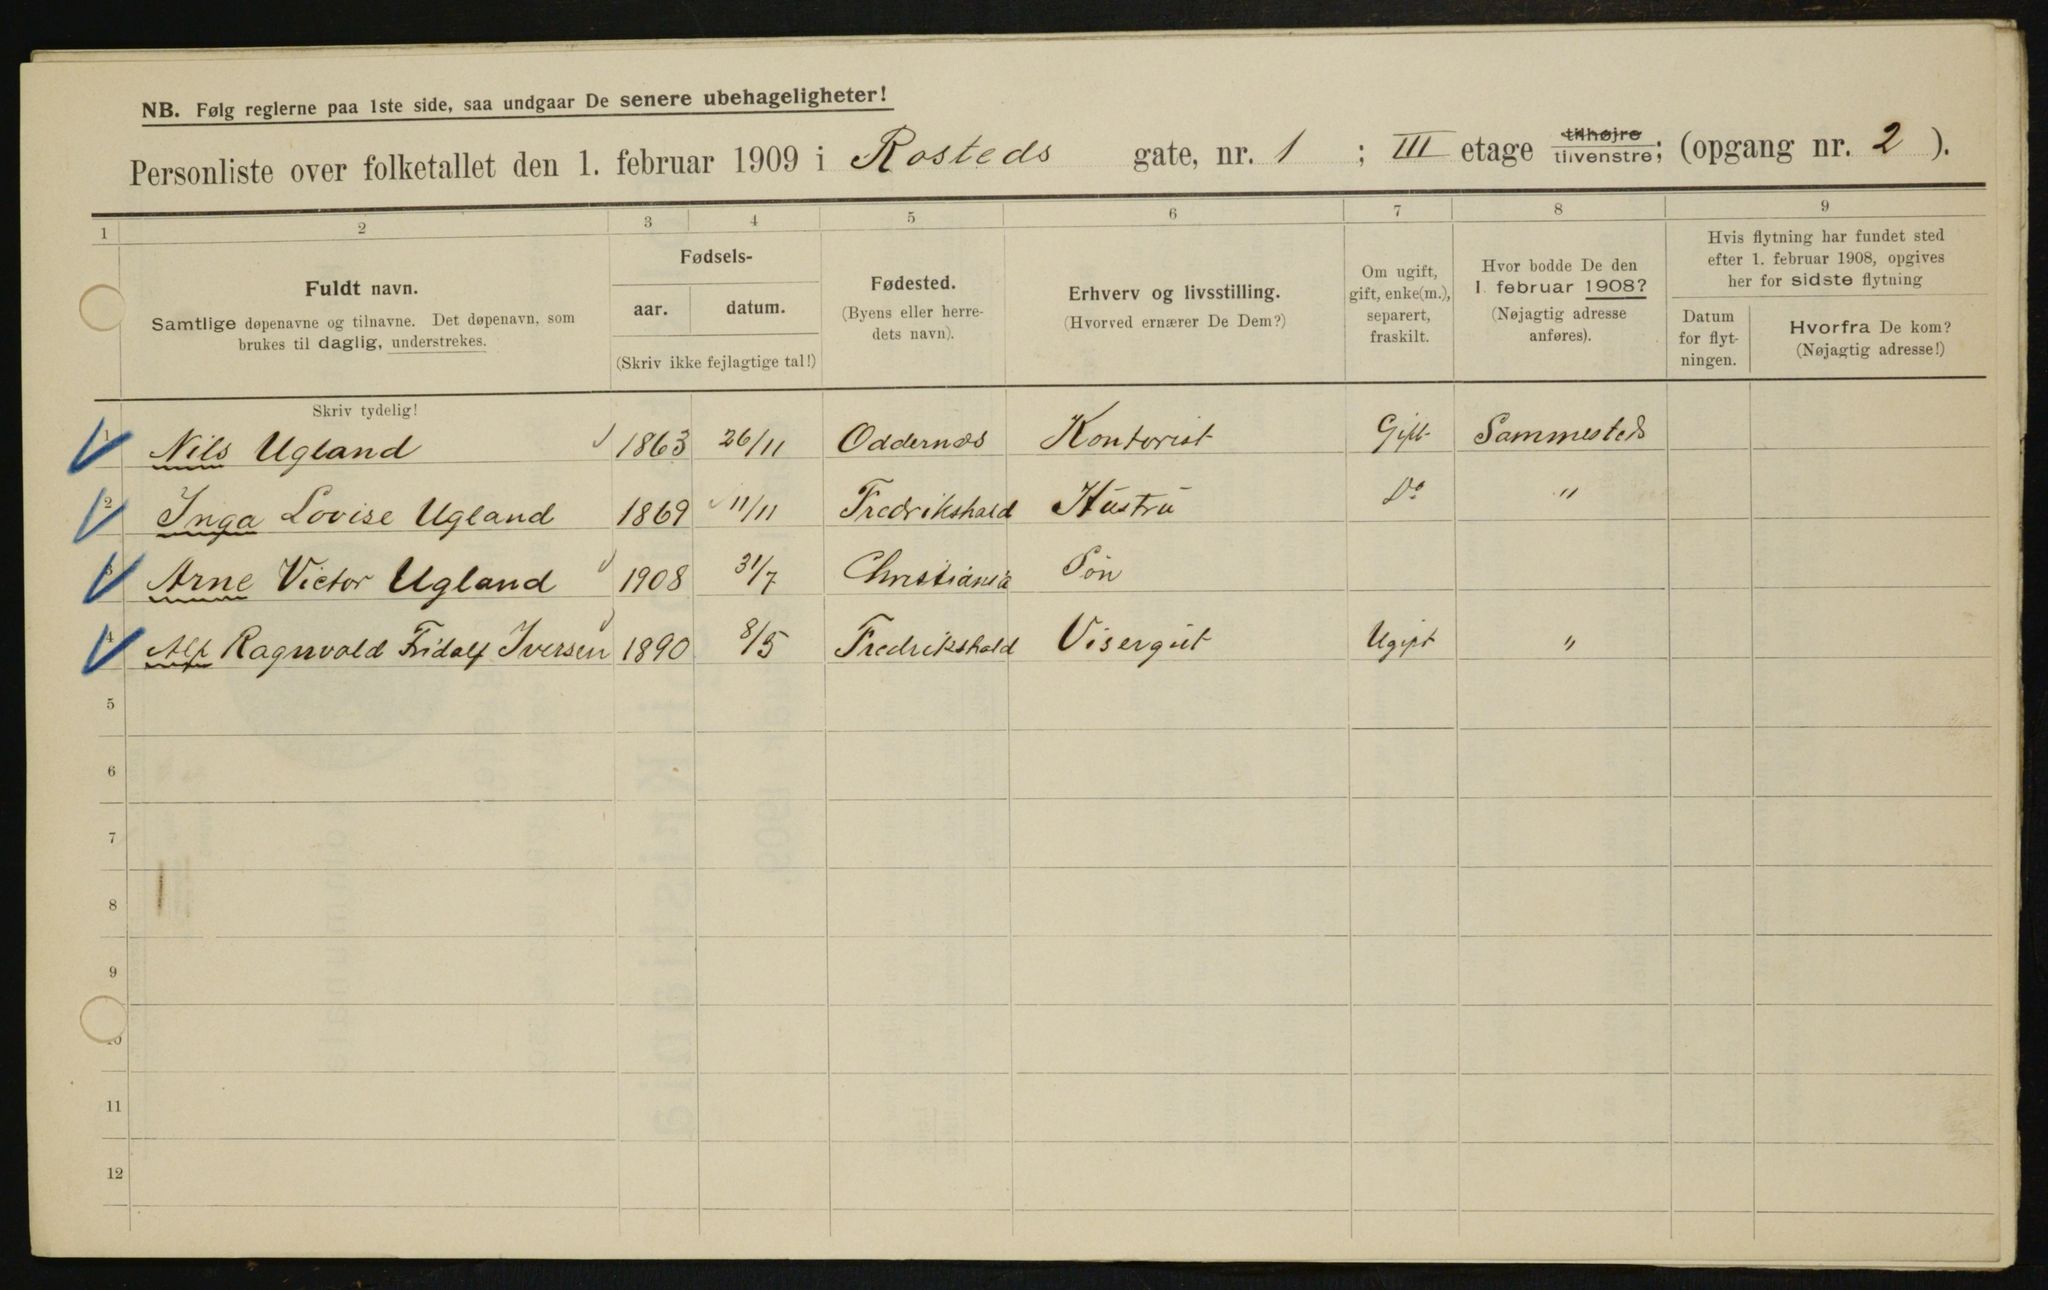 NB. Følg reglerne paa 1ste side, saa undgaar De senere ubehageligheter!
Personliste over folketallet den 1. februar 1909 i Rosteds gate, nr. 1 ; III etage tilhøjre tilvenstre; (opgang nr. 2 ).
1 2 3 4 5 6 7 8 9
Fuldt navn.
Samtlige døpenavne og tilnavne. Det døpenavn, som
brukes til daglig, understrekes.
Fødsels-
aar. datum.
(Skriv ikke fejlagtige tal!)
Fødested.
(Byens eller herre-
dets navn).
Erhverv og livsstilling.
(Hvorved ernærer De Dem?)
Om ugift,
gift, enke(m.),
separert,
fraskilt.
Hvor bodde De den
1. februar 1908?
(Nøjagtig adresse
anføres).
Hvis flytning har fundet sted
efter 1. februar 1908, opgives
her for sidste flytning
Datum
for flyt-
ningen.
Hvorfra De kom?
(Nøjagtig adresse!)
Skriv tydelig!
1 Nils Ugland 1863 26/11 Oddernæs Kontorist Gift Sammesteds
2 Inga Lovise Ugland 1869 11/11 Fredrikshald Hustru Do "
3 Arne Victor Ugland 1908 31/7 Christiania Søn
4 Alf Ragnvald Fridolf Iversen 1890 8/5 Fredrikshald Visergut Ugift "
5
6
7
8
9
10
11
12